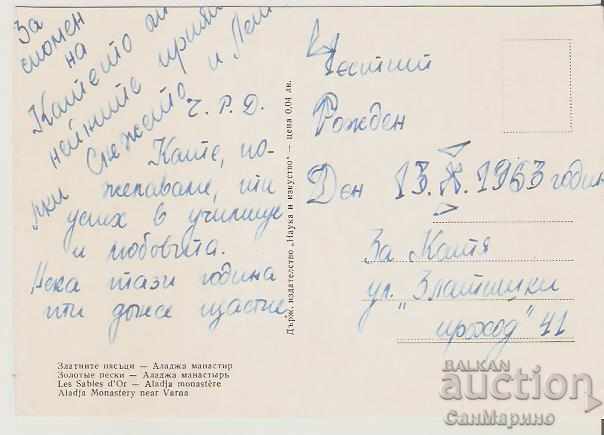 За
спомен
на
Катето от
нейните приятел
ки Снежето и Лени
Ч. Р. Д.
Кате, по-
желаваме ти
успех в училище
и любовта.
Нека тази година
ти донесе щастие
Честит
Рожден
Ден 13.X.1963 година
За Катя
ул. "Златишки
проход" 41
Държ. издателство „Наука и изкуство" — цена 0,04 лв.
Златните пясъци — Аладжа манастир
Золотые пески — Аладжа манастырь
Les Sables d'Or — Aladja monastère
Aladja Monastery near Varna
BALKAN
auction
СанМарино